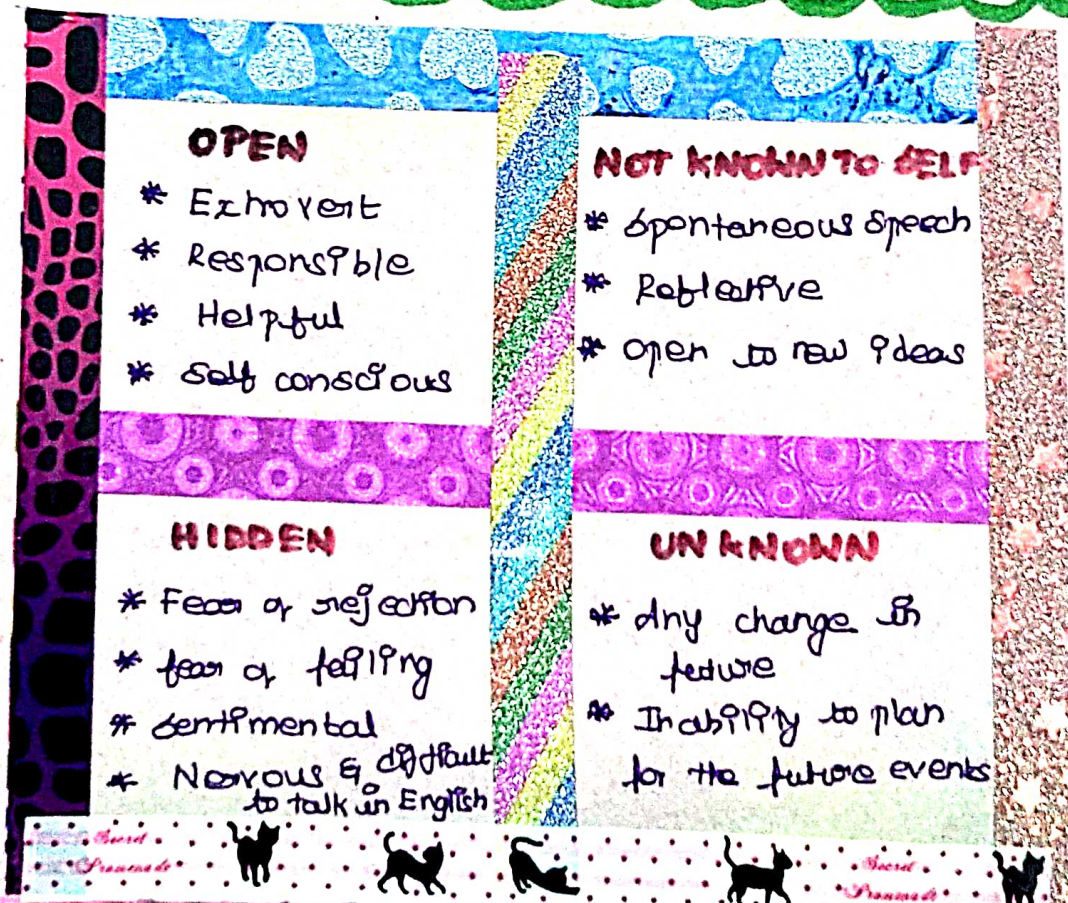 OPEN
* Extrovert
* Responsible
* Helpful
* Self conscious
NOT KNOWN TO SELF
* Spontaneous speech
* Reflective
* Open to new ideas
HIDDEN
* Fear of rejection
* fear of failing
* sentimental
* Nervous & difficult
to talk in English
UNKNOWN
* Any change in
future
* Inability to plan
for the future events
Secret
Secret